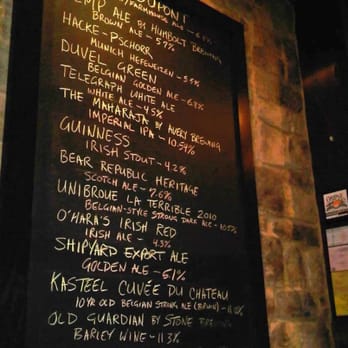 DUPONT
FARMHOUSE ALE - 6.
HEMP ALE BY HUMBOLT BREWING
BROWN ALE - 5.7%
HACKE-PSCHORR
MUNICH HEFEWEIZEN - 5.5%
DUVEL GREEN
BELGIAN GOLDEN ALE - 6.8%
TELEGRAPH WHITE ALE
THE WHITE ALE - 4.5%
THE MAHARAJA BY AVERY BREWING
IMPERIAL IPA - 10.54%
GUINNESS
IRISH STOUT - 4.2%
BEAR REPUBLIC HERITAGE
SCOTCH ALE - 7.6%
UNIBROUE LA TERRIBLE 2010
BELGIAN-STYLE STRONG DARK ALE - 10.5%
O'HARA'S IRISH RED
IRISH ALE - 4.3%
SHIPYARD EXPORT ALE
GOLDEN ALE - 5.1%
KASTEEL CUVÉE DU CHATEAU
10 YR OLD BELGIAN STRONG ALE (BROWN) - 11.0%
OLD GUARDIAN BY STONE BREWING
BARLEY WINE - 11.3%